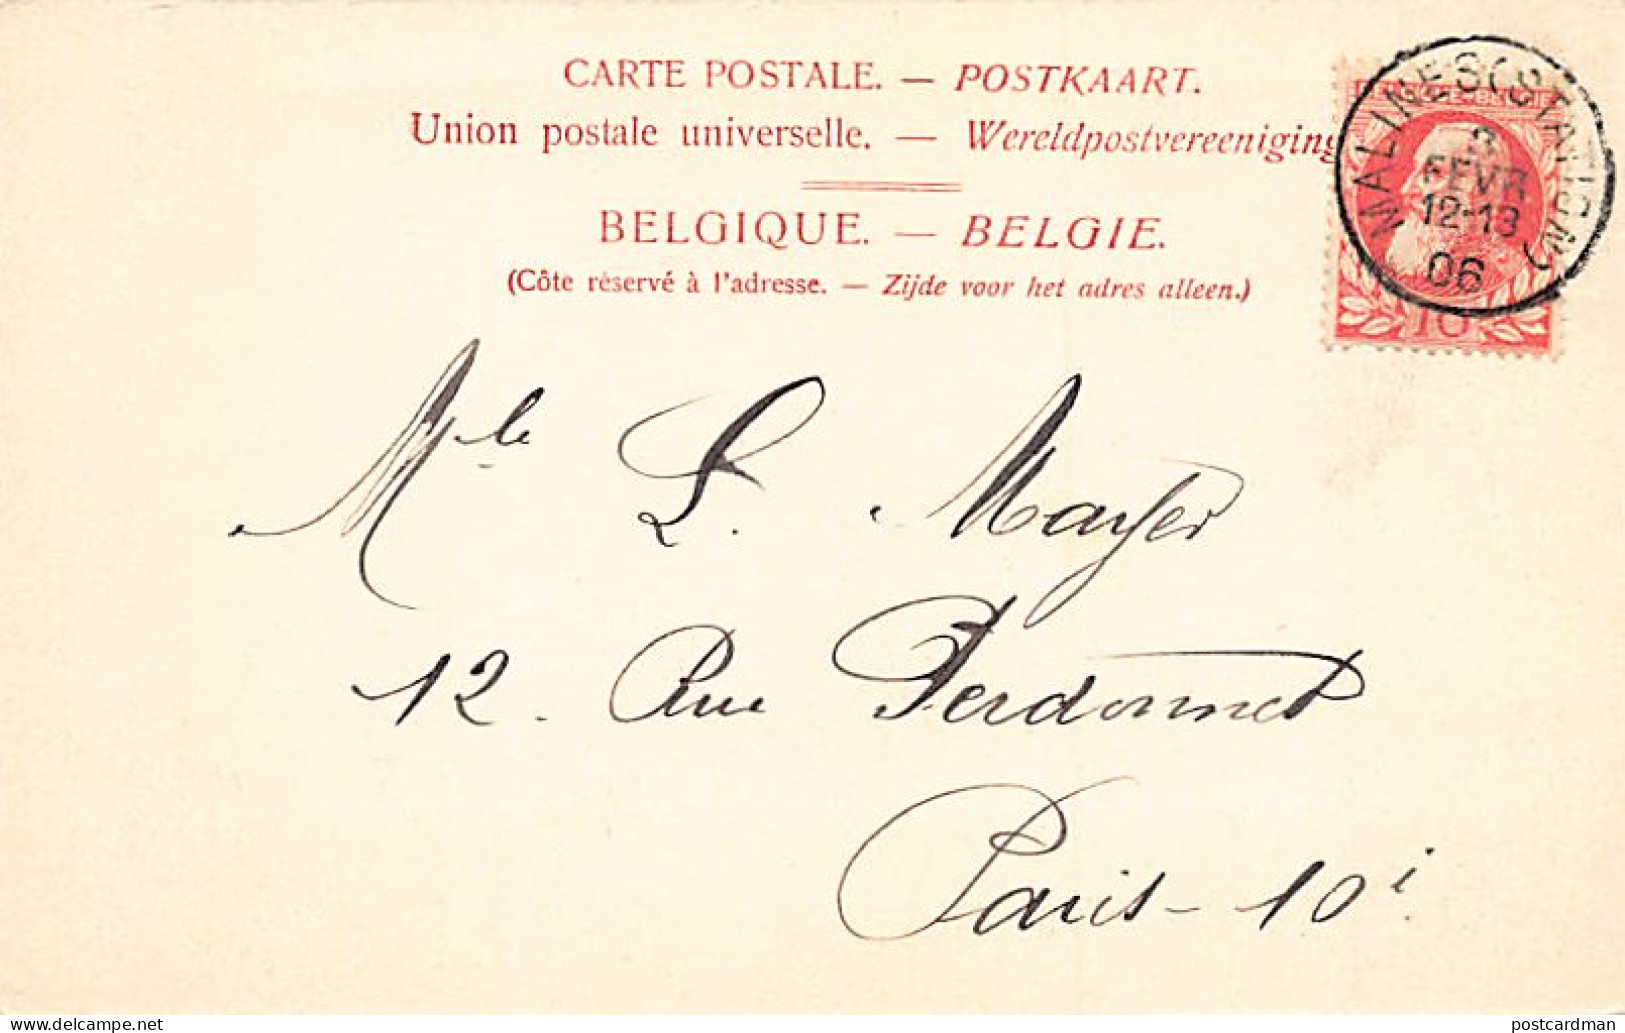 CARTE POSTALE. — POSTKAART.
Union postale universelle. — Wereldpostvereeniging
BELGIQUE. — BELGIE.
(Côte réservé à l'adresse. — Zijde voor het adres alleen.)
MALINES (STATION)
3
FEVR
12-13
06
10
Mle L. Mayer
12. Rue Perdonnet
Paris - 10i
www.delcampe.net
postcardman